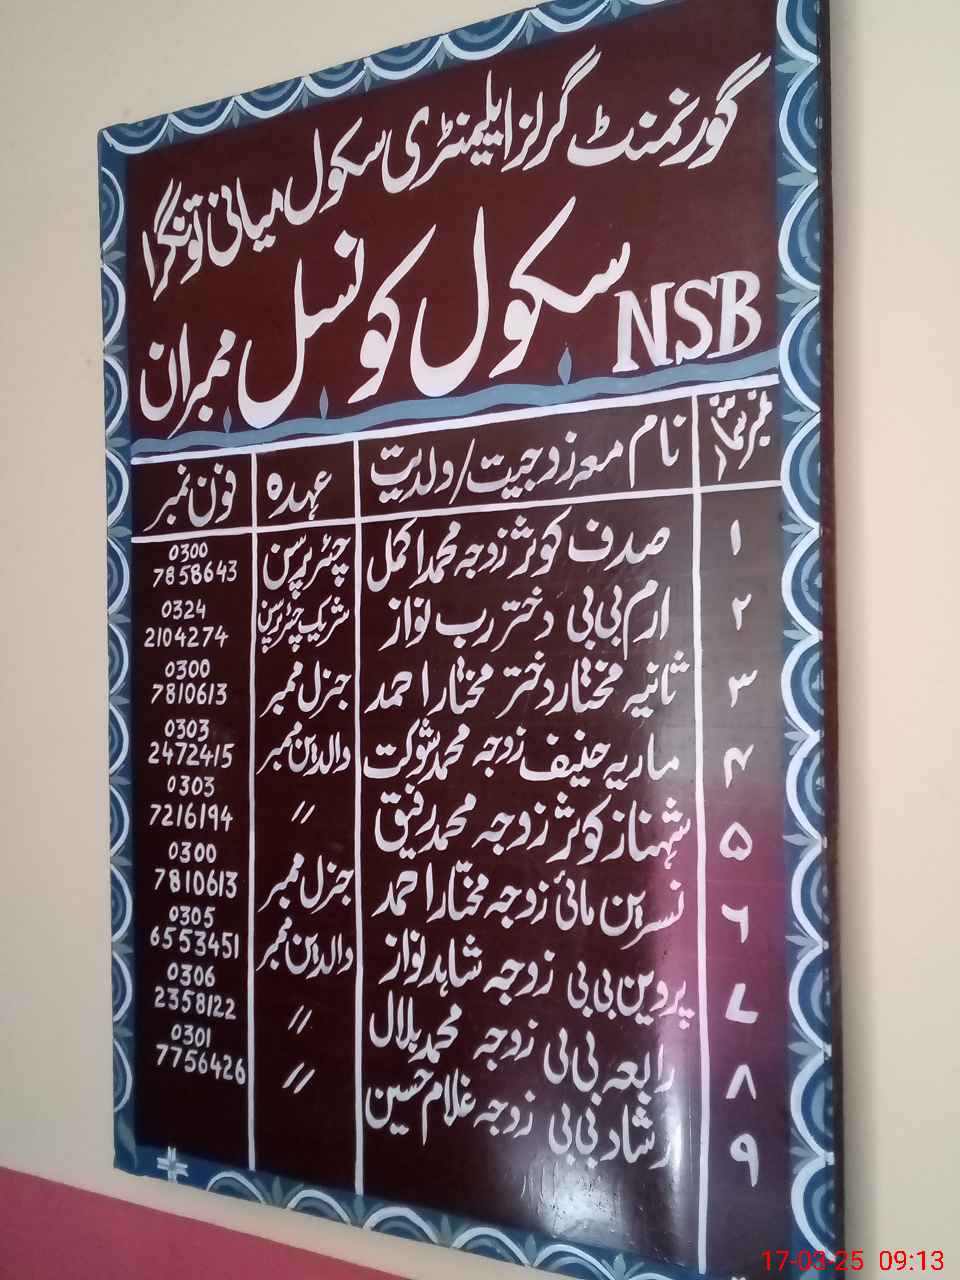 گورنمنٹ گرلز ایلیمنٹری سکول میانی تونگرا
NSB سکول کونسل ممبران
نمبر شمار نام معہ زوجیت/ولدیت عہدہ فون نمبر
۱ صدف کوثر زوجہ محمد اکمل چئرپرسن 0300 7858643
۲ ارم بی بی دختر رب نواز شریک چئرپرسن 0324 2104274
۳ ثانیہ مختار دختر مختار احمد جنرل ممبر 0300 7810613
۴ ماریہ حنیف زوجہ محمد شوکت والدین ممبر 0303 2472415
۵ شہناز کوثر زوجہ محمد رفیق // 0303 7216194
۶ نسرین مائی زوجہ مختار احمد جنرل ممبر 0300 7810613
۷ پروین بی بی زوجہ شاہد نواز والدین ممبر 0305 6553451
۸ رابعہ بی بی زوجہ محمد بلال // 0306 2358122
۹ رشاد بی بی زوجہ غلام حسین // 0301 7756426
17-03-25 09:13